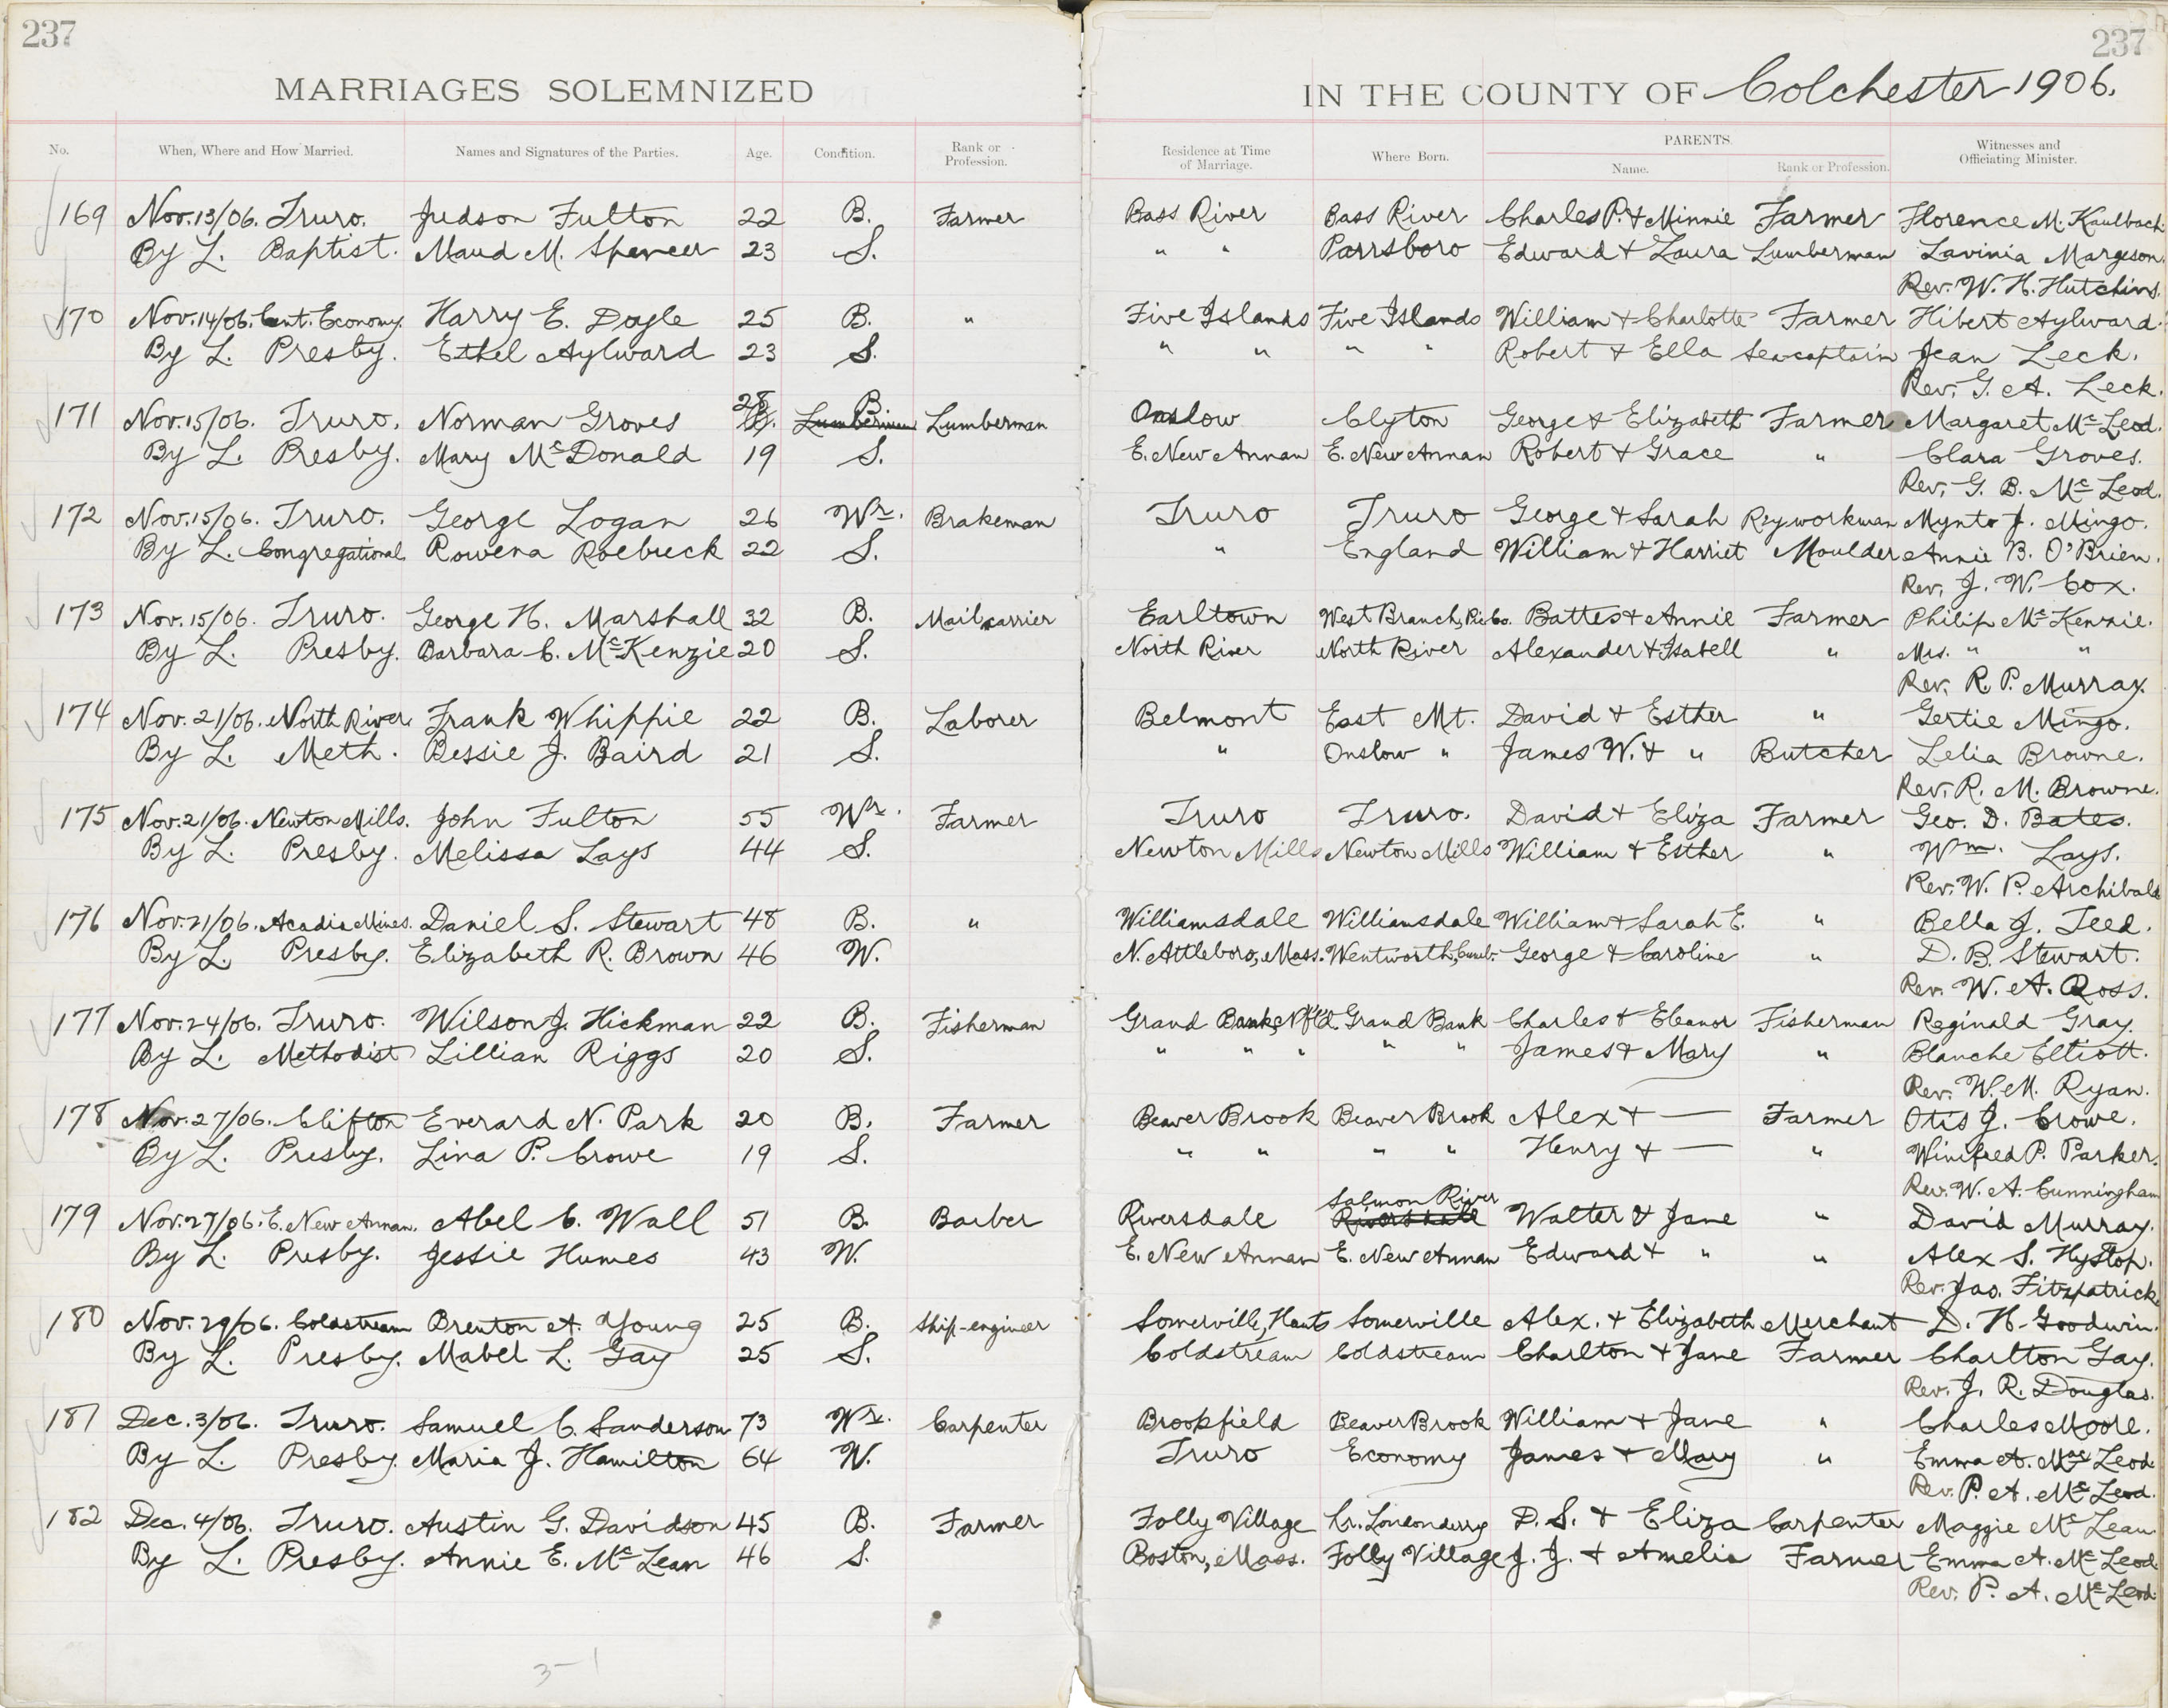 237 237
MARRIAGES SOLEMNIZED IN THE COUNTY OF Colchester 1906.
No. When, Where and How Married. Names and Signatures of the Parties. Age. Condition. Rank or Profession. Residence at Time of Marriage. Where Born. PARENTS. Name. Rank or Profession. Witnesses and Officiating Minister.
169 Nov. 13/06. Truro. Judson Fulton 22 B. Farmer Bass River Bass River Charles P. & Minnie Farmer Florence M. Kaulbach
By L. Baptist. Maud M. Spencer 23 S. " " Parrsboro Edward & Laura Lumberman Lavinia Margeson.
Rev. W. H. Hutchins.
170 Nov. 14/06. Cent. Economy. Harry E. Doyle 25 B. " Five Islands Five Islands William & Charlotte Farmer Hibert Aylward.
By L. Presby. Ethel Aylward 23 S. " " " " Robert & Ella Sea captain Jean Leck.
Rev. G. A. Leck.
171 Nov. 15/06. Truro. Norman Groves 28 B. Lumberman Lumberman Onslow Clyton George & Elizabeth Farmer Margaret McLeod.
By L. Presby. Mary McDonald 19 S. E. New Annan E. New Annan Robert & Grace " Clara Groves.
Rev. G. B. McLeod.
172 Nov. 15/06. Truro. George Logan 26 Wr. Brakeman Truro Truro George & Sarah Ry. workman Mynto J. Mingo.
By L. Congregational Rowena Roebuck 22 S. " England William & Harriet Moulder Annie B. O'Brien.
Rev. J. W. Cox.
173 Nov. 15/06. Truro. George H. Marshall 32 B. Mail carrier Earltown West Branch, Pic Co. Battes & Annie Farmer Philip McKenzie.
By L. Presby. Barbara C. McKenzie 20 S. North River North River Alexander & Isabell " Mrs. " "
Rev. R. P. Murray.
174 Nov. 21/06. North River. Frank Whippie 22 B. Laborer Belmont East Mt. David & Esther " Gertie Mingo.
By L. Meth. Bessie J. Baird 21 S. " Onslow " James W. & " Butcher Lelia Browne.
Rev. R. M. Browne.
175 Nov. 21/06. Newton Mills. John Fulton 55 Wr. Farmer Truro Truro. David & Eliza Farmer Geo. D. Bates.
By L. Presby. Melissa Lays 44 S. Newton Mills Newton Mills William & Esther " Wm. Lays.
Rev. W. P. Archibald
176 Nov. 21/06. Acadia Mines. Daniel S. Stewart 48 B. " Williamsdale Williamsdale William & Sarah E. " Bella J. Teed.
By L. Presby. Elizabeth R. Brown 46 W. N. Attleboro, Mass. Wentworth, Cumb. George & Caroline " D. B. Stewart.
Rev. W. A. Ross.
177 Nov. 24/06. Truro. Wilson J. Hickman 22 B. Fisherman Grand Bank, Nfl'd. Grand Bank Charles & Eleanor Fisherman Reginald Gray.
By L. Methodist Lillian Riggs 20 S. " " " " " James & Mary " Blanche Elliott.
Rev. W. M. Ryan.
178 Nov. 27/06. Clifton Everard N. Park 20 B. Farmer Beaver Brook Beaver Brook Alex & — Farmer Otis J. Crowe.
By L. Presby. Lina P. Crowe 19 S. " " " " Henry & — " Winifred P. Parker.
Rev. W. A. Cunningham
179 Nov. 27/06. E. New Annan. Abel C. Wall 51 B. Barber Riversdale Salmon River Riversdale Walter & Jane " David Murray.
By L. Presby. Jessie Humes 43 W. E. New Annan E. New Annan Edward & " " Alex S. Hyslop.
Rev. Jas. Fitzpatrick.
180 Nov. 29/06. Coldstream Brenton A. Young 25 B. Ship-engineer Somerville, Hants Somerville Alex. & Elizabeth Merchant D. H. Goodwin.
By L. Presby. Mabel L. Gay 25 S. Coldstream Coldstream Charlton & Jane Farmer Charlton Gay.
Rev. J. R. Douglas.
181 Dec. 3/06. Truro. Samuel C. Sanderson 73 Wr. Carpenter Brookfield Beaver Brook William & Jane " Charles Moore.
By L. Presby. Maria J. Hamilton 64 W. Truro Economy James & Mary " Emma A. MacLeod.
Rev. P. A. McLeod.
182 Dec. 4/06. Truro. Austin G. Davidson 45 B. Farmer Folly Village Lr. Londonderry D. S. & Eliza Carpenter Maggie McLean
By L. Presby. Annie E. McLean 46 S. Boston, Mass. Folly Village J. J. & Amelia Farmer Emma A. McLeod.
Rev. P. A. McLeod.
3-1